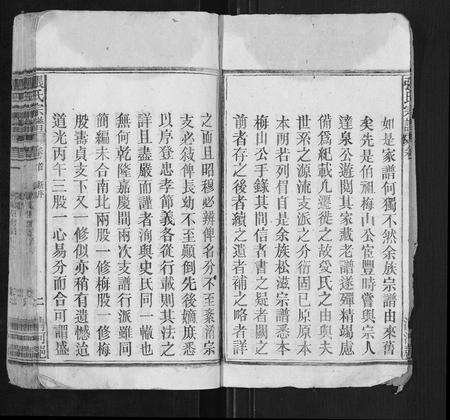 如是家譜何獨不然余族宗譜由來舊
矣先是伯祖梅山公宦豐時嘗與宗人
達泉公遊閱其家藏老譜遂殫精塲慮
備爲紀載凡遷徙之故爰氏之由與夫
世系之源流支派之分衍固已原原本
本朗若列眉自是余族松滋宗譜悉本
梅山公手錄其間信者書之疑者闕之
前者存之後者續之遺者補之略者詳
之而且昭穆必辨俾名分不至紊淆宗
支必敍俾長幼不至顚倒先後嫡庶悉
以序登忠孝節義各從行載則其法之
詳且盡嚴而謹者洵與史氏同一轍也
無何乾隆嘉慶間兩次支譜行派雖同
簡編未合南北兩股一修梅股一修梅
股壽貞支下又一修似亦稍有遺憾迨
道光丙午三股一心易分而合可謂盛
氏宗譜
二